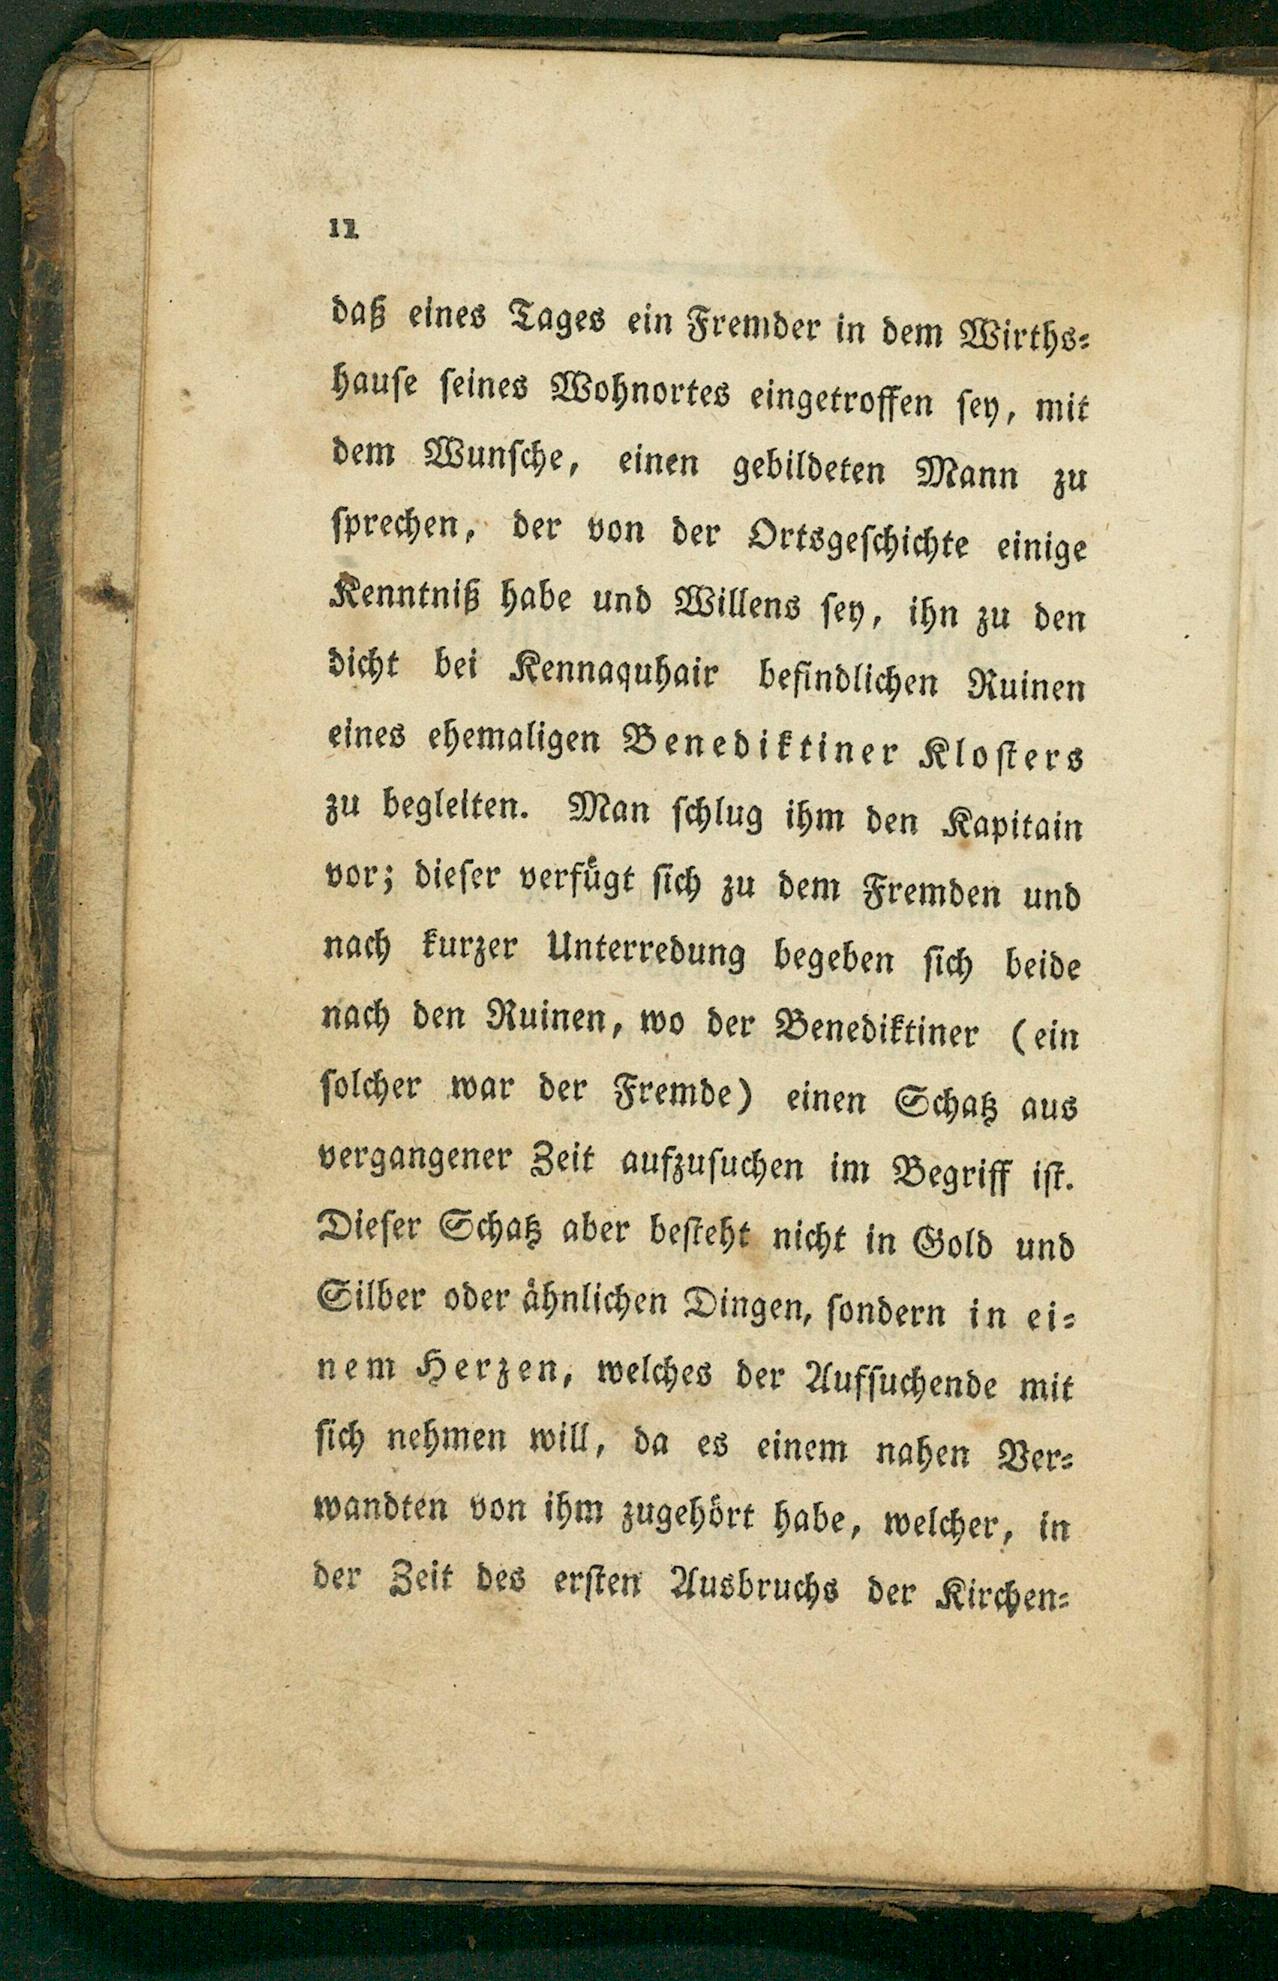 12
daß eines Tages ein Fremder in dem Wirths-
hause seines Wohnortes eingetroffen sey, mit
dem Wunsche, einen gebildeten Mann zu
sprechen, der von der Ortsgeschichte einige
Kenntniß habe und Willens sey, ihn zu den
dicht bei Kennaquhair befindlichen Ruinen
eines ehemaligen Benediktiner Klosters
zu begleiten. Man schlug ihm den Kapitain
vor; dieser verfügt sich zu dem Fremden und
nach kurzer Unterredung begeben sich beide
nach den Ruinen, wo der Benediktiner (ein
solcher war der Fremde) einen Schatz aus
vergangener Zeit aufzusuchen im Begriff ist.
Dieser Schatz aber besteht nicht in Gold und
Silber oder ähnlichen Dingen, sondern in ei-
nem Herzen, welches der Aufsuchende mit
sich nehmen will, da es einem nahen Ver-
wandten von ihm zugehört habe, welcher, in
der Zeit des ersten Ausbruchs der Kirchen-